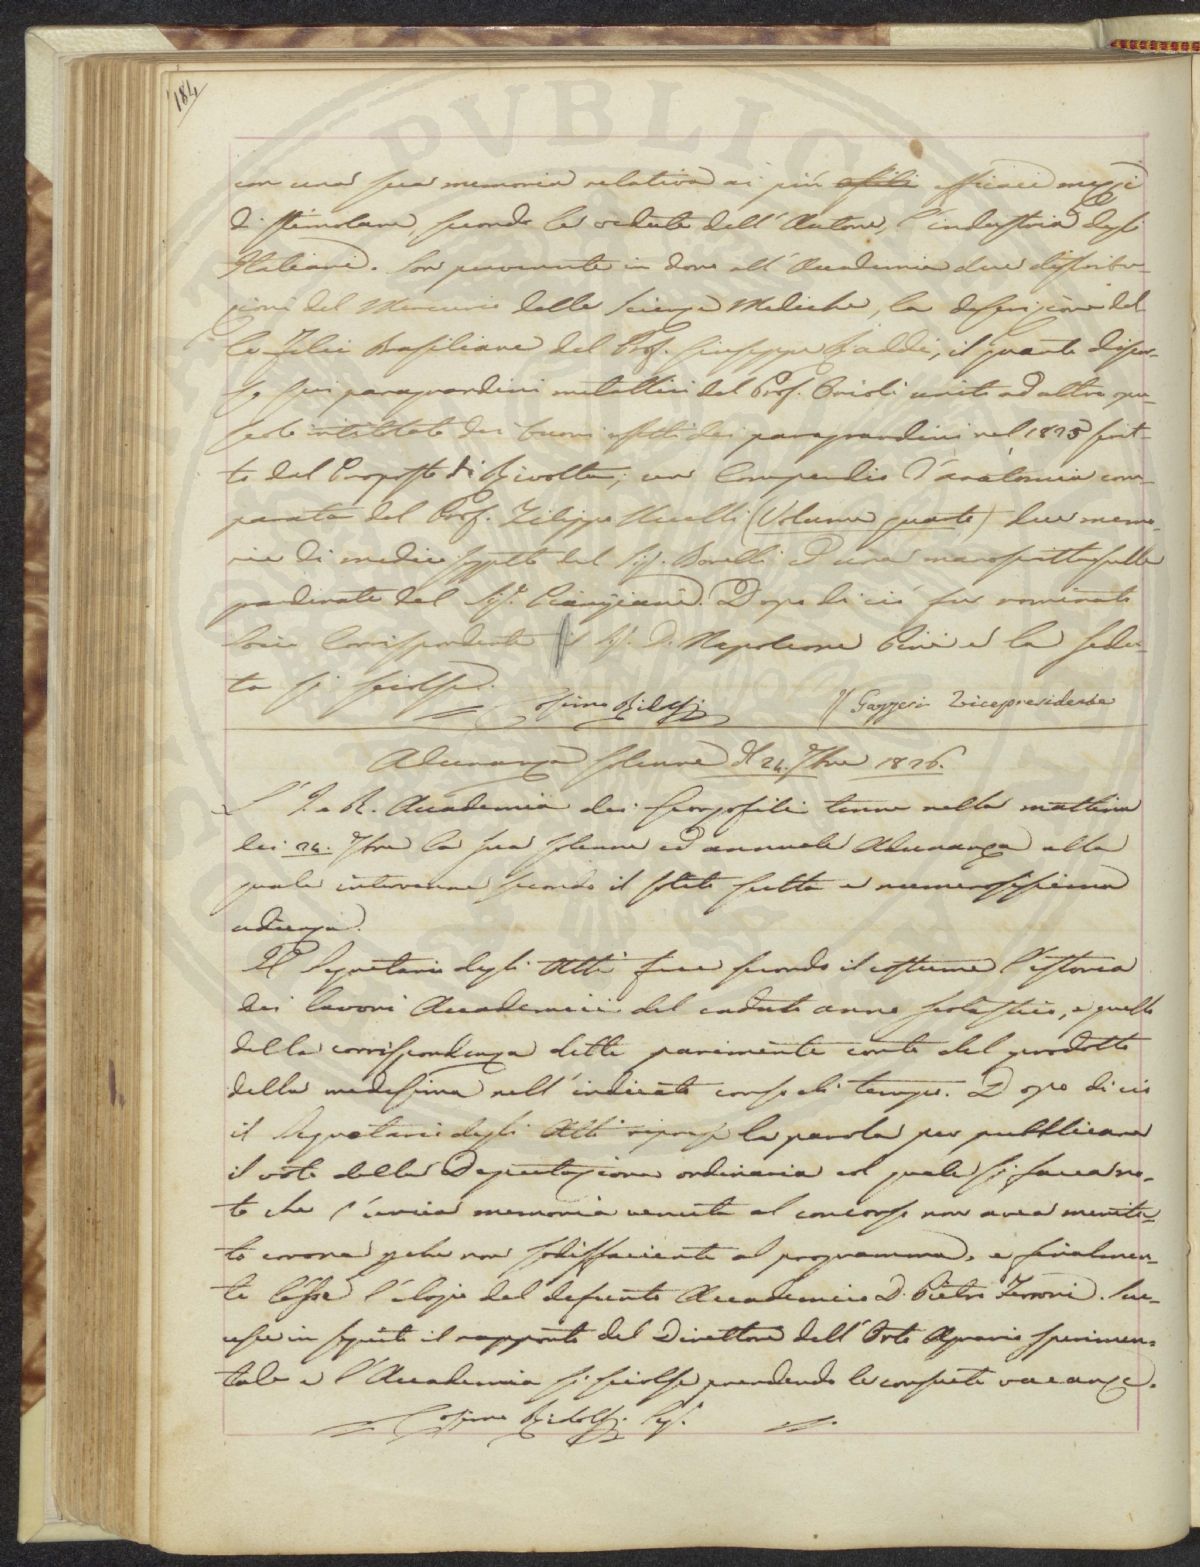 184
con una sua memoria relativa ai più utili efficaci mezzi
di stimolare, secondo le vedute dell'Autore, l'industria degli
Italiani. Son pervenute in dono all'Accademia due distribu-
zioni del Mercurio delle Scienze Mediche, la descrizione del
le Felci Brasiliane del Prof. Giuseppe Raddi, il quarto discor-
so sui paragrandini metallici del Prof. Orioli unito ad altro opu-
scolo intitolato dei buoni effetti dei paragrandini nel 1825 scrit-
to dal Proposto di Rivolta; un Compendio d'anatomia com-
parata del Prof. Filippo Uccelli (Volume quarto) due memo-
rie di medico soggetto del Sig. Borelli ed una manoscritta sulle
del Sig. Dopo di ciò fu nominato
Socio Corrispondente il Sig. D. Napoleone Pini e la sedu-
ta si sciolse.
Cosimo Ridolfi G Gazzeri Vicepresidente
Adunanza solenne del 24. 7bre 1826.
L'I. e R. Accademia dei Georgofili tenne nella mattina
dei 24. 7bre la sua solenne ed annuale Adunanza alla
quale intervenne secondo il solito scelta e numerosissima
udienza.
Il Segretario degli Atti fece secondo il costume l'istoria
dei lavori Accademici del caduto anno scolastico, e quello
della corrispondenza dette parimente conto del prodotto
della medesima nell'indicato corso di tempo. Dopo di ciò
il Segretario degli Atti riprese la parola per pubblicare
il voto della Deputazione ordinaria col quale si facea no-
to che l'unica memoria venuta al concorso non avea merita-
to corona perché non sodisfaciente al programma, e finalmen-
te lesse l'elogio del defunto Accademico D. Pietro Ferroni. Suc-
cesse in seguito il rapporto del Direttore dell'Orto Agrario sperimen-
tale e l'Accademia si sciolse prendendo le consuete vacanze.
Cosimo Ridolfi Seg.